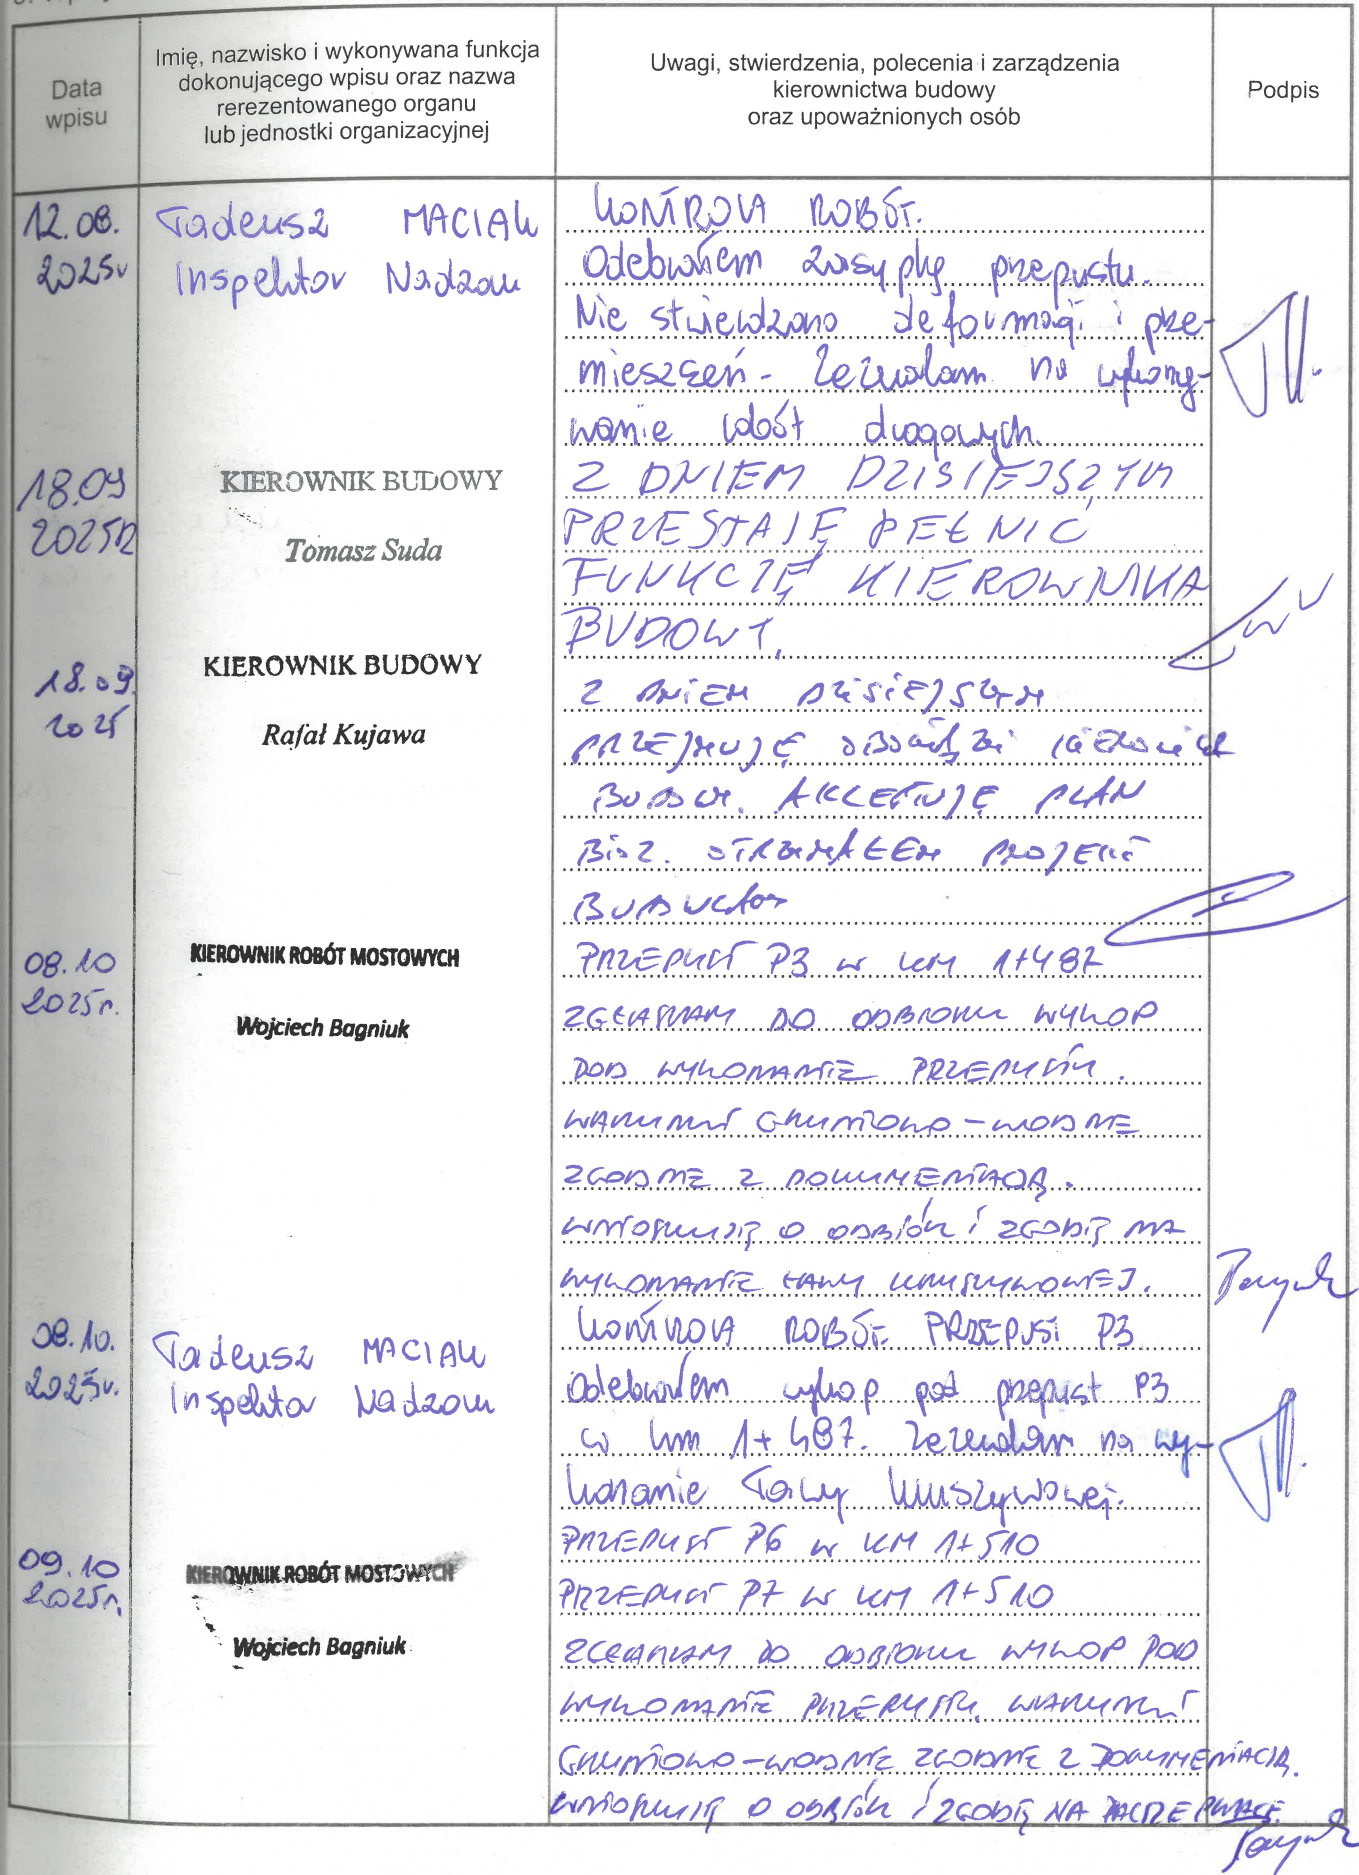 Data
wpisu
Imię, nazwisko i wykonywana funkcja
dokonującego wpisu oraz nazwa
rerezentowanego organu
lub jednostki organizacyjnej
Uwagi, stwierdzenia, polecenia i zarządzenia
kierownictwa budowy
oraz upoważnionych osób
Podpis
12.08.
2025r
Tadeusz MACIAK
Inspektor Nadzoru
KONTROLA ROBÓT.
Odebrałem zasypkę przepustu.
Nie stwierdzono deformacji i prze-
mieszczeń - Zezwalam na wykony-
wanie robót drogowych.
18.09
2025R
KIEROWNIK BUDOWY
Tomasz Suda
Z DNIEM DZISIEJSZYM
PRZESTAJĘ PEŁNIĆ
FUNKCJĘ KIEROWNIKA
BUDOWY.
18.09.
2025
KIEROWNIK BUDOWY
Rafał Kujawa
Z DNIEM DZISIEJSZYM
PRZEJMUJĘ OBOWIĄZKI KIEROWNIKA
BUDOWY. AKCEPTUJĘ PLAN
BIOZ. OTRZYMAŁEM PROJEKT
BUDOWLANY
08.10
2025r.
KIEROWNIK ROBÓT MOSTOWYCH
Wojciech Bagniuk
PRZEPUST P3 W KM 1+487
ZGŁASZAM DO ODBIORU WYKOP
POD WYKONANIE PRZEPUSTU.
WARUNKI GRUNTOWO-WODNE
ZGODNE Z DOKUMENTACJĄ.
WNIOSKUJĘ O ODBIÓR I ZGODĘ NA
WYKONANIE ŁAWY KRUSZYWOWEJ.
08.10.
2025r.
Tadeusz MACIAK
Inspektor Nadzoru
KONTROLA ROBÓT. PRZEPUST P3
Odebrałem wykop pod przepust P3
w km 1+487. Zezwalam na wy-
konanie ławy kruszywowej.
09.10
2025r.
KIEROWNIK ROBÓT MOSTOWYCH
Wojciech Bagniuk
PRZEPUST P6 W KM 1+510
PRZEPUST P7 W KM 1+510
ZGŁASZAM DO ODBIORU WYKOP POD
WYKONANIE PRZEPUSTU. WARUNKI
GRUNTOWO-WODNE ZGODNE Z DOKUMENTACJĄ.
WNIOSKUJĘ O ODBIÓR I ZGODĘ NA